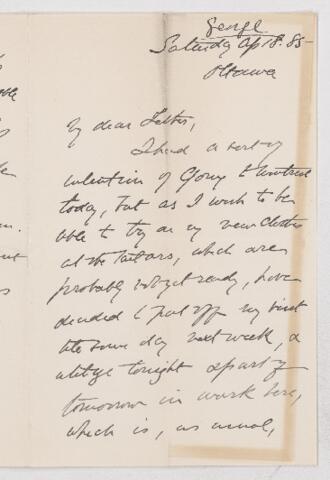 George
Saturday Ap 18. 85
Ottawa
My dear Father,
I had a sort of
intention of going to Montreal
today, but as I wish to be
able to try on my new clothes
at the tailors, which are
probably not yet ready, have
decided to put off my visit
till some day next week, &
utilize tonight & part of
tomorrow in work here,
which is, as usual,